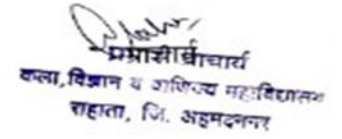 प्राचार्य
कला, विज्ञान व वाणिज्य महाविद्यालय
राहाता, जि. अहमदनगर